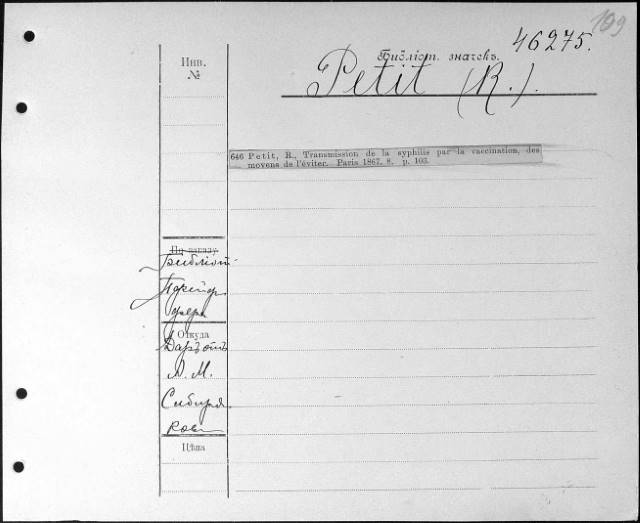 109
46275.
Инв.
№
Библіот. значекъ.
Petit (R.).
646 Petit, R., Transmission de la syphilis par la vaccination, des
moyens de l'éviter. Paris 1867. 8. p. 103.
Библіот.
Откуда
Даръ отъ
А. М.
Сибиря-
кова
Цѣна